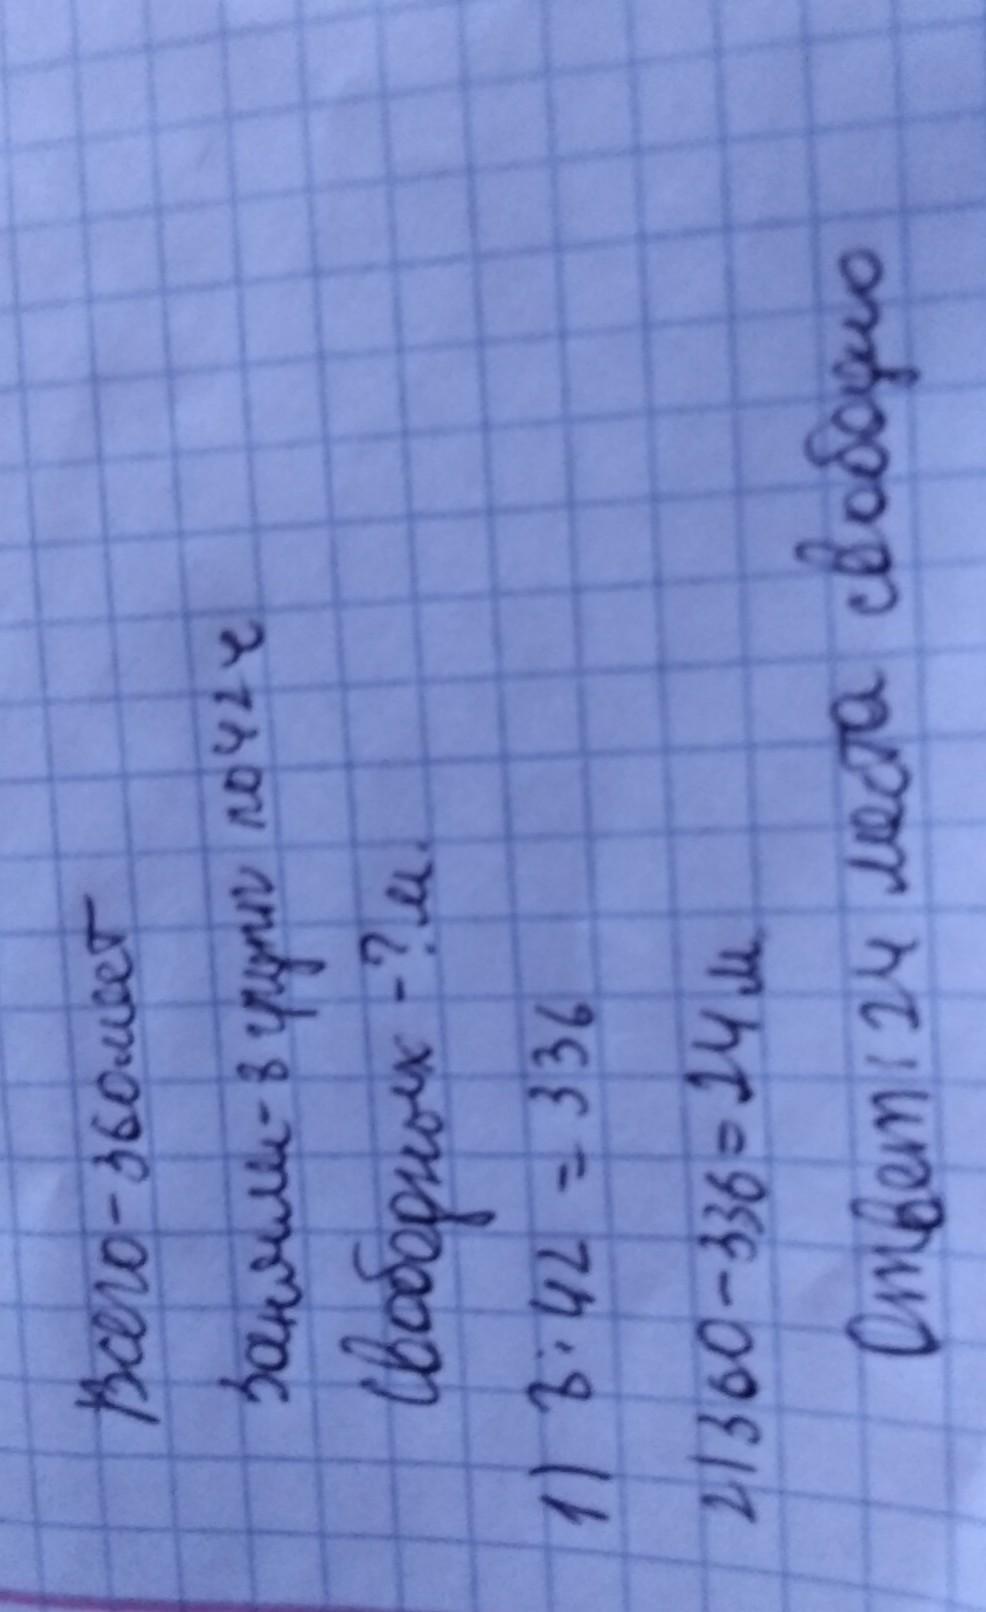 Всего - 360 мест
Заняли - 8 групп по 42 ч
Свободных - ? м.
1) 8 · 42 = 336
2) 360 - 336 = 24 м
Ответ: 24 места свободно